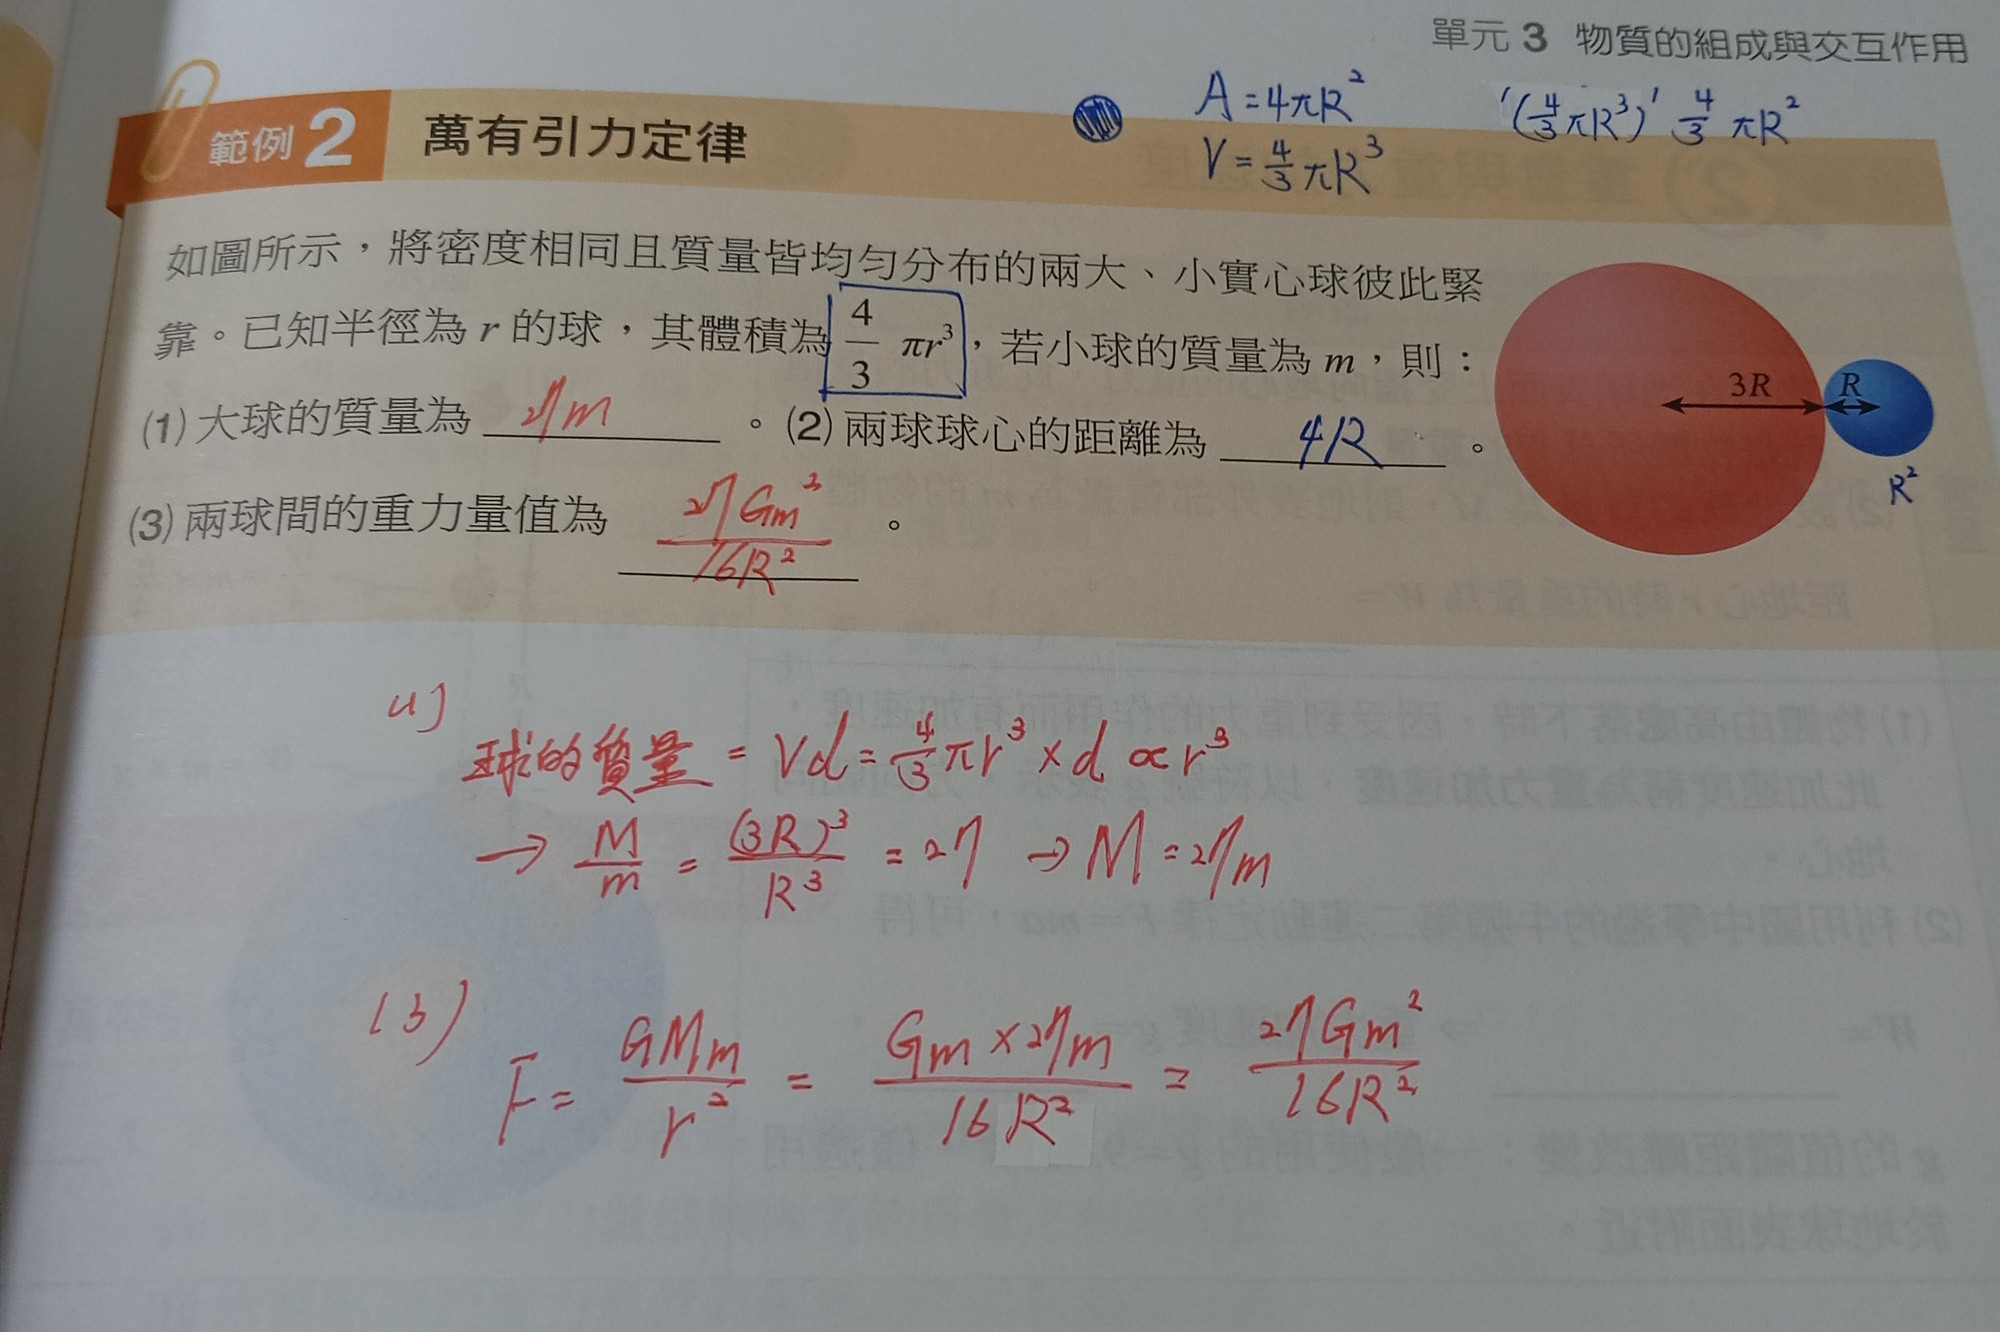 單元 3 物質的組成與交互作用
A = 4πR²
V = 4/3 πR³
'(4/3 πR³)' 4/3 πR²
範例 2 萬有引力定律
如圖所示，將密度相同且質量皆均勻分布的兩大、小實心球彼此緊
靠。已知半徑為 r 的球，其體積為 4/3 πr³，若小球的質量為 m，則：
(1) 大球的質量為 27m 。(2) 兩球球心的距離為 4R 。
(3) 兩球間的重力量值為 27Gm²/16R² 。
3R R
R²
(1)
球的質量 = Vd = 4/3 πr³ × d ∝ r³
→ M/m = (3R)³/R³ = 27 → M = 27m
(3)
F = GMm/r² = Gm×27m/16R² = 27Gm²/16R²